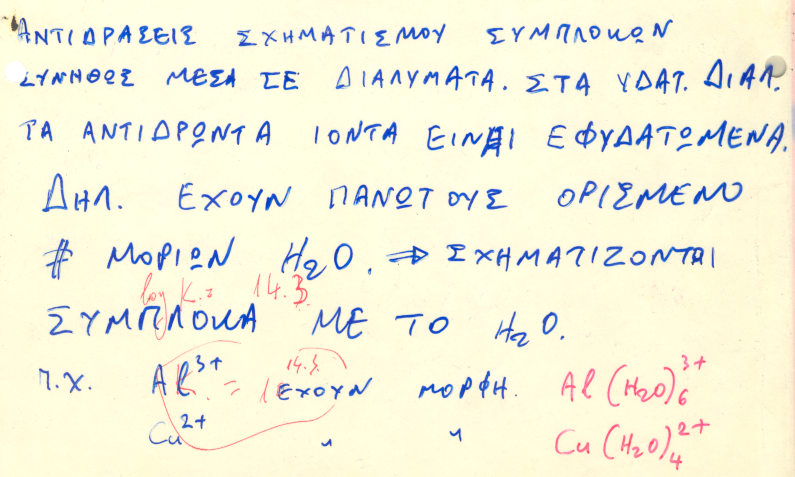 ΑΝΤΙΔΡΑΣΕΙΣ ΣΧΗΜΑΤΙΣΜΟΥ ΣΥΜΠΛΟΚΩΝ
ΣΥΝΗΘΩΣ ΜΕΣΑ ΣΕ ΔΙΑΛΥΜΑΤΑ. ΣΤΑ ΥΔΑΤ. ΔΙΑΛ.
ΤΑ ΑΝΤΙΔΡΩΝΤΑ ΙΟΝΤΑ ΕΙΝΑΙ ΕΦΥΔΑΤΩΜΕΝΑ.
ΔΗΛ. ΕΧΟΥΝ ΠΑΝΩ ΤΟΥΣ ΟΡΙΣΜΕΝΟ
# ΜΟΡΙΩΝ H₂O. ⇒ ΣΧΗΜΑΤΙΖΟΝΤΑΙ
log K = 14.3
ΣΥΜΠΛΟΚΑ ΜΕ ΤΟ H₂O.
Π.Χ. Al³⁺ ΕΧΟΥΝ ΜΟΡΦΗ. Al(H₂O)₆³⁺
K = 10^14.3
Cu²⁺ " " Cu(H₂O)₄²⁺